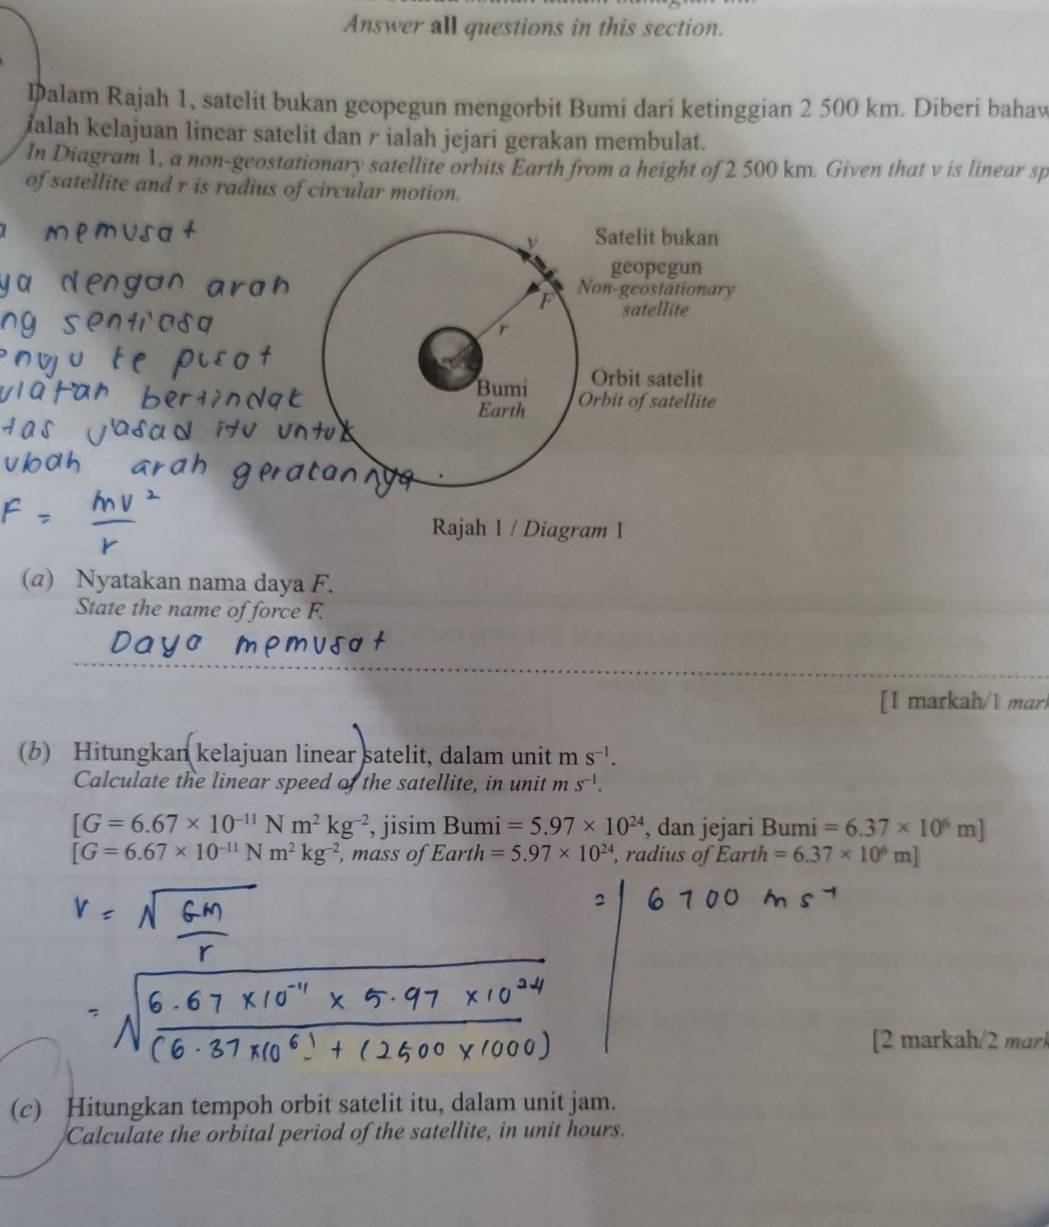 Answer all questions in this section.
Dalam Rajah 1, satelit bukan geopegun mengorbit Bumi dari ketinggian 2 500 km. Diberi bahaw
ialah kelajuan linear satelit dan r ialah jejari gerakan membulat.
In Diagram 1, a non-geostationary satellite orbits Earth from a height of 2 500 km. Given that v is linear sp
of satellite and r is radius of circular motion.
a memusat
ya dengan arah
ng sentiasa
enuju ke pusat
ulatan bertindak
tas jasad itu untuk
ubah arah gerakannya.
F = mv²/r
v
F
r
Satelit bukan
geopegun
Non-geostationary
satellite
Bumi
Earth
Orbit satelit
Orbit of satellite
Rajah 1 / Diagram 1
(a) Nyatakan nama daya F.
State the name of force F.
Daya memusat
[1 markah/1 mark
(b) Hitungkan kelajuan linear satelit, dalam unit m s⁻¹.
Calculate the linear speed of the satellite, in unit m s⁻¹.
[G = 6.67 × 10⁻¹¹ N m² kg⁻², jisim Bumi = 5.97 × 10²⁴, dan jejari Bumi = 6.37 × 10⁶ m]
[G = 6.67 × 10⁻¹¹ N m² kg⁻², mass of Earth = 5.97 × 10²⁴, radius of Earth = 6.37 × 10⁶ m]
v = √(GM/r)
= √(6.67 × 10⁻¹¹ × 5.97 × 10²⁴ / (6.37 × 10⁶) + (2500 × 1000))
= 6700 m s⁻¹
[2 markah/2 mark
(c) Hitungkan tempoh orbit satelit itu, dalam unit jam.
Calculate the orbital period of the satellite, in unit hours.